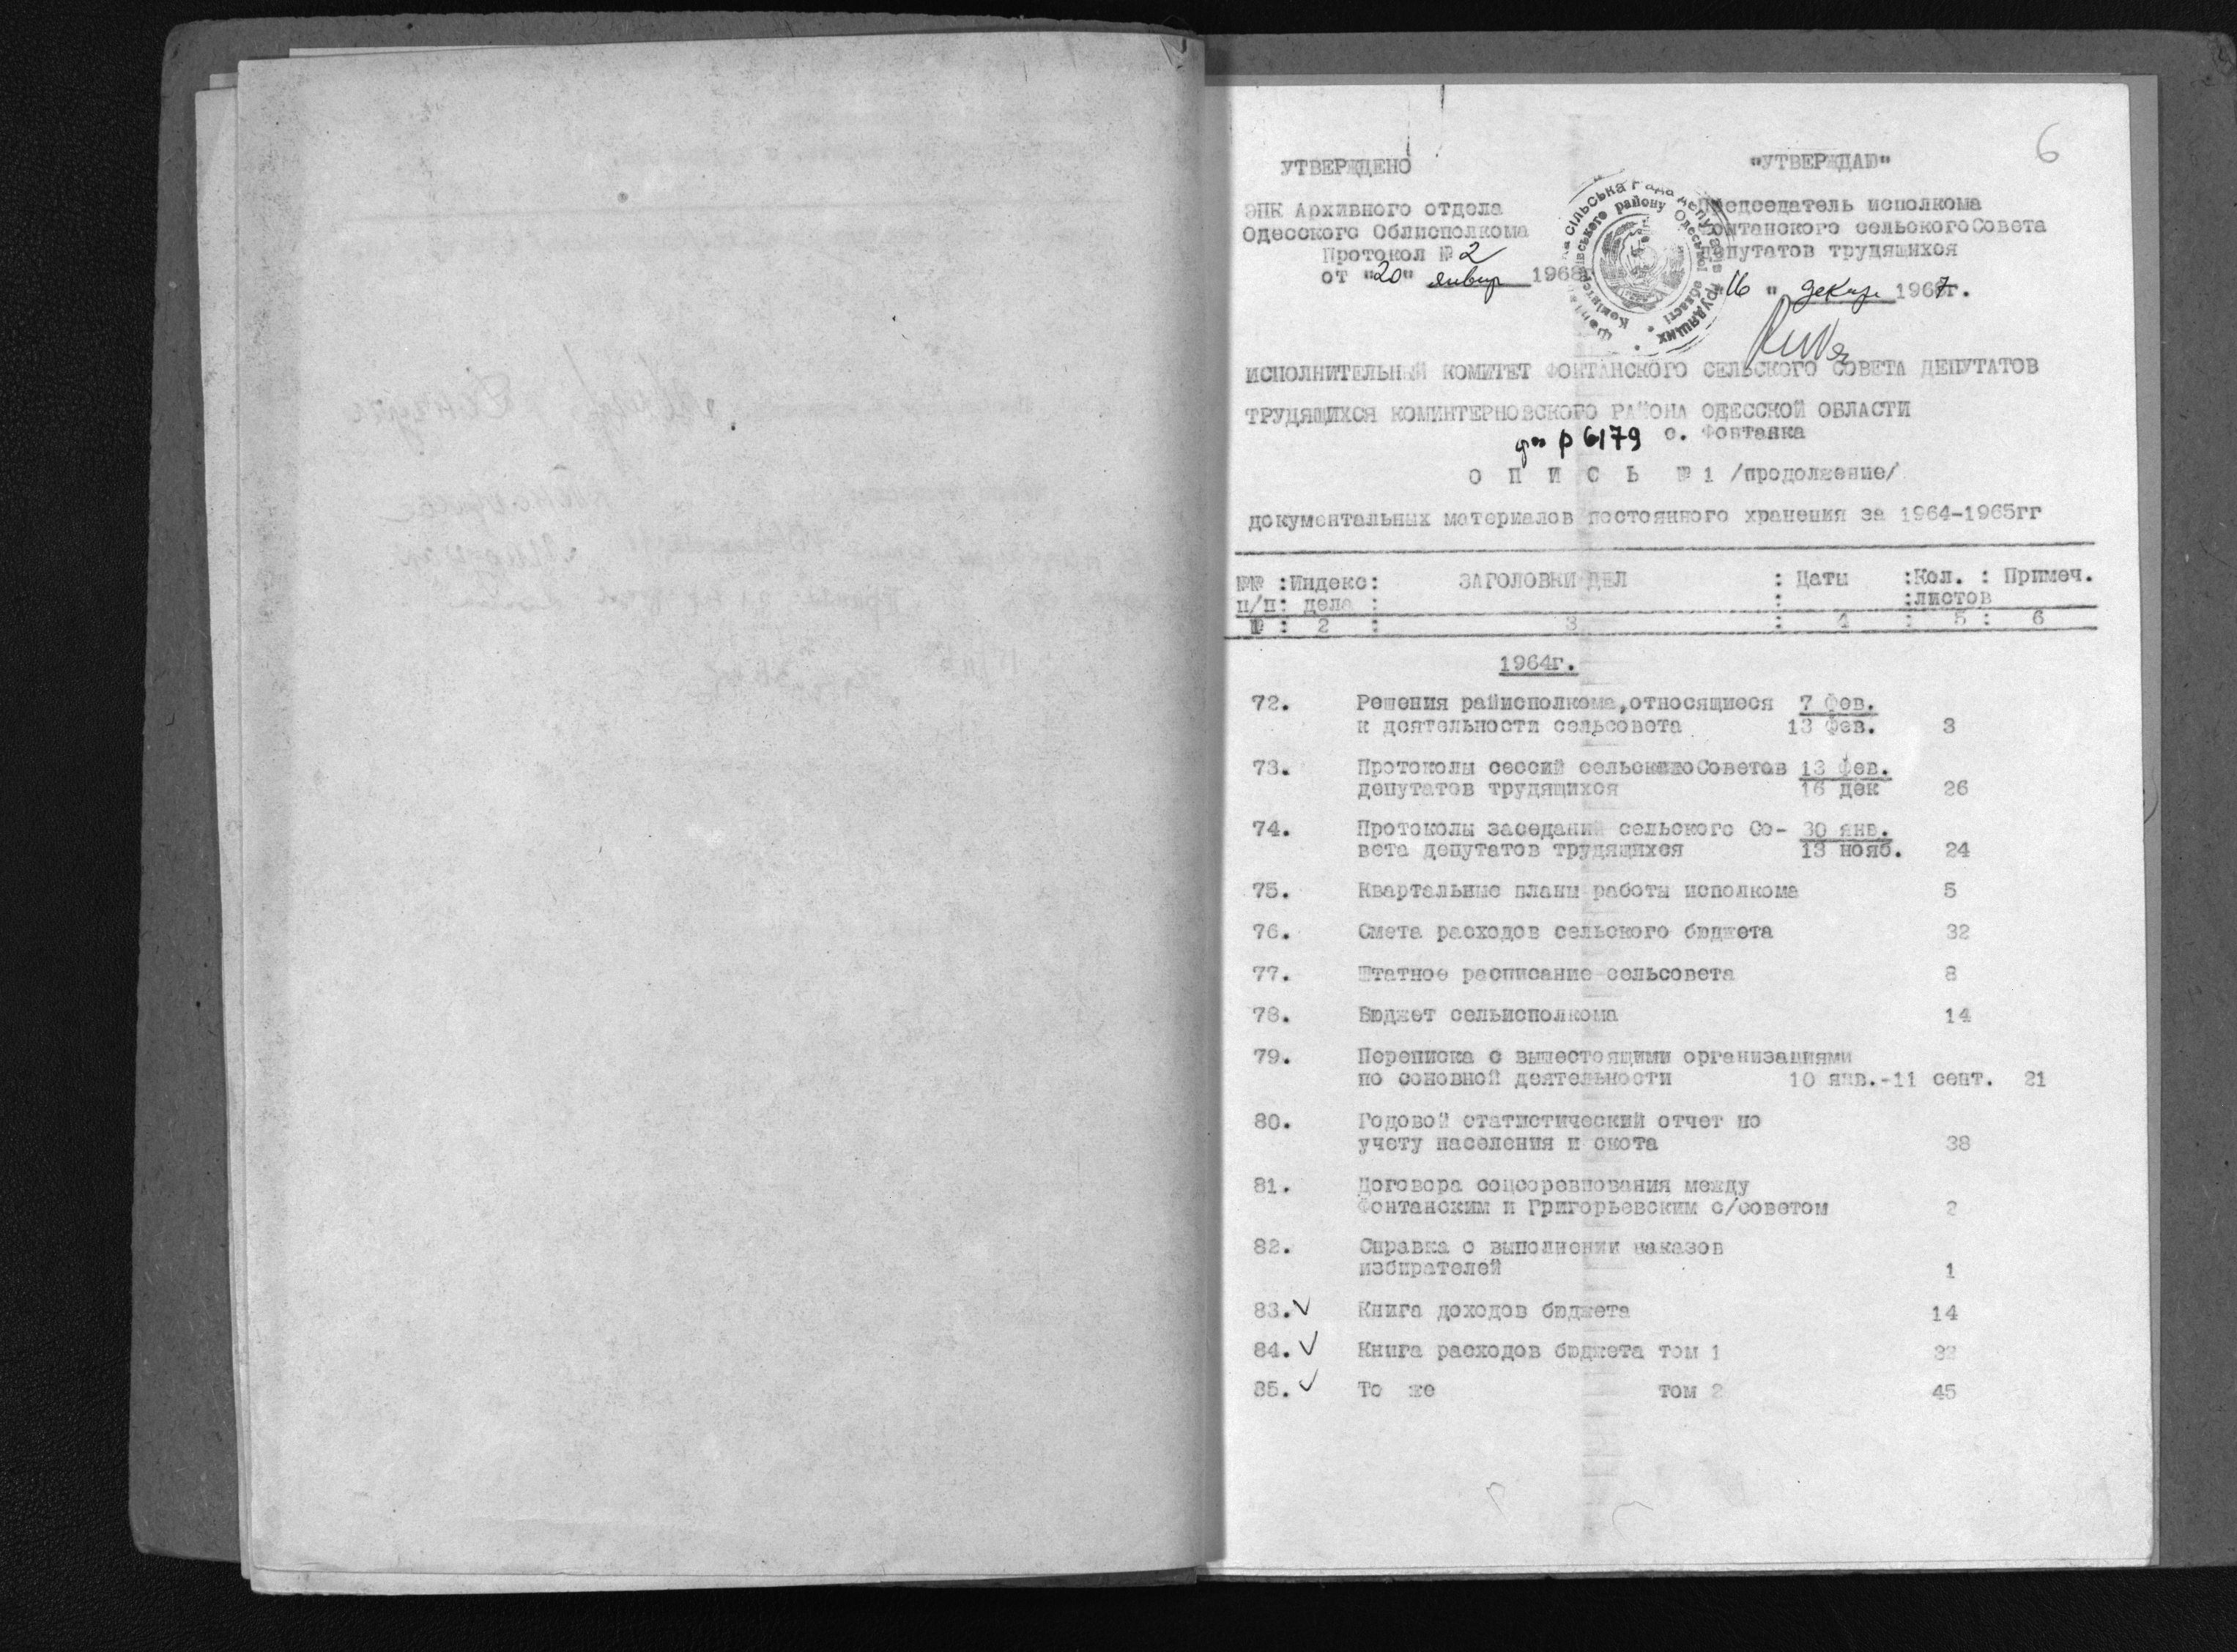 6
УТВЕРЖДЕНО
"УТВЕРЖДАЮ"
ЭПК Архивного отдела
Одесского Облисполкома
Протокол № 2
от "20" январ 1968г
Председатель исполкома
Фонтанского сельскогоСовета
депутатов трудящихся
16 " декаб 1967г.
сільська Рада депутатів трудящих
Комінтернівського району Одеської області
ИСПОЛНИТЕЛЬНЫЙ КОМИТЕТ ФОНТАНСКОГО СЕЛЬСКОГО СОВЕТА ДЕПУТАТОВ
ТРУДЯЩИХСЯ КОМИНТЕРНОВСКОГО РАЙОНА ОДЕССКОЙ ОБЛАСТИ
р 6179 с. Фонтанка
О П И С Ь № 1 /продолжение/
документальных материалов постоянного хранения за 1964-1965гг
№№ :Индекс: ЗАГОЛОВКИ ДЕЛ : Даты :Кол. : Примеч.
п/п: дела : : :листов
№ : 2 : 3 : 4 : 5 : 6
1964г.
72. Решения райисполкома,относящиеся 7 фев.
к деятельности сельсовета 13 фев. 3
73. Протоколы сессий сельскогоСоветов 13 фев.
депутатов трудящихся 16 дек 26
74. Протоколы заседаний сельского Со- 30 янв.
вета депутатов трудящихся 13 нояб. 24
75. Квартальные планы работы исполкома 5
76. Смета расходов сельского бюджета 32
77. Штатное расписание сельсовета 8
78. Бюджет сельисполкома 14
79. Переписка с вышестоящими организациями
по соновной деятельности 10 янв.-11 сент. 21
80. Годовой статистический отчет по
учету населения и скота 38
81. Договора соцсоревнования между
Фонтанским и Григорьевским с/советом 2
82. Справка о выполнении наказов
избирателей 1
83.✓ Книга доходов бюджета 14
84.✓ Книга расходов бюджета том 1 32
85.✓ То же том 2 45